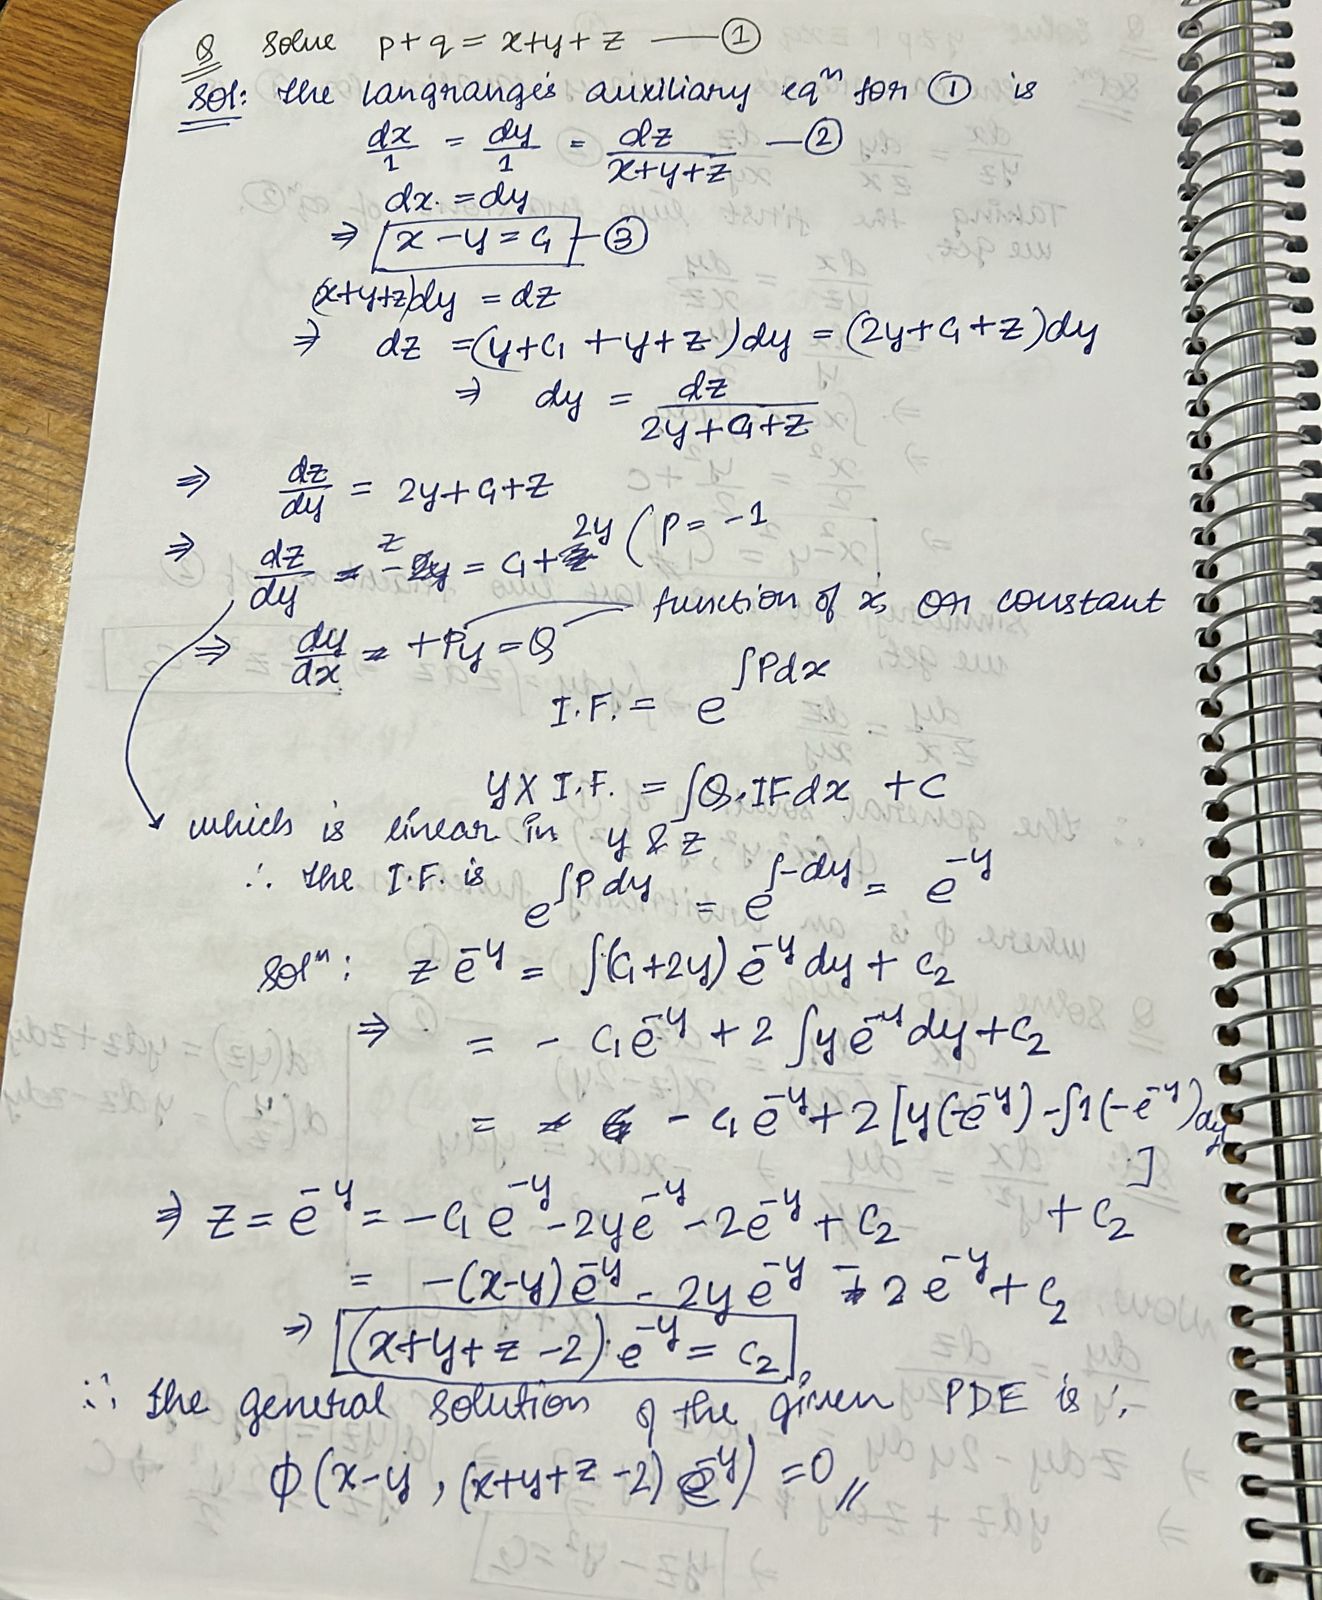 Q Solve p+q = x+y+z —— ①
Sol: The Langranges auxiliary eqⁿ for ① is
dx/1 = dy/1 = dz/(x+y+z) — ②
dx = dy
⇒ x – y = C₁ — ③
(x+y+z)dy = dz
⇒ dz = (y+C₁ +y+z)dy = (2y+C₁+z)dy
⇒ dy = dz/(2y+C₁+z)
⇒ dz/dy = 2y+C₁+z
⇒ dz/dy - z = C₁+2y (P = -1
⇒ dy/dx +Py = Q function of x, or constant
I.F. = e^∫Pdx
y x I.F. = ∫Q.IFdx + C
which is linear in y & z
∴ the I.F. is e^∫P dy = e^∫-dy = e^-y
Solⁿ: z e^-y = ∫(C₁+2y) e^-y dy + C₂
⇒ = - C₁e^-y + 2 ∫ye^-y dy+C₂
= - C₁ e^-y + 2 [y(-e^-y) - ∫1(-e^-y)dy]
+ C₂
⇒ z = e^-y = -C₁ e^-y - 2ye^-y - 2e^-y + C₂
= -(x-y)e^-y - 2y e^-y - 2 e^-y + C₂
⇒ (x+y+z -2). e^-y = C₂,
∴ the general solution of the given PDE is,
ϕ(x-y, (x+y+z -2) e^-y) = 0 //